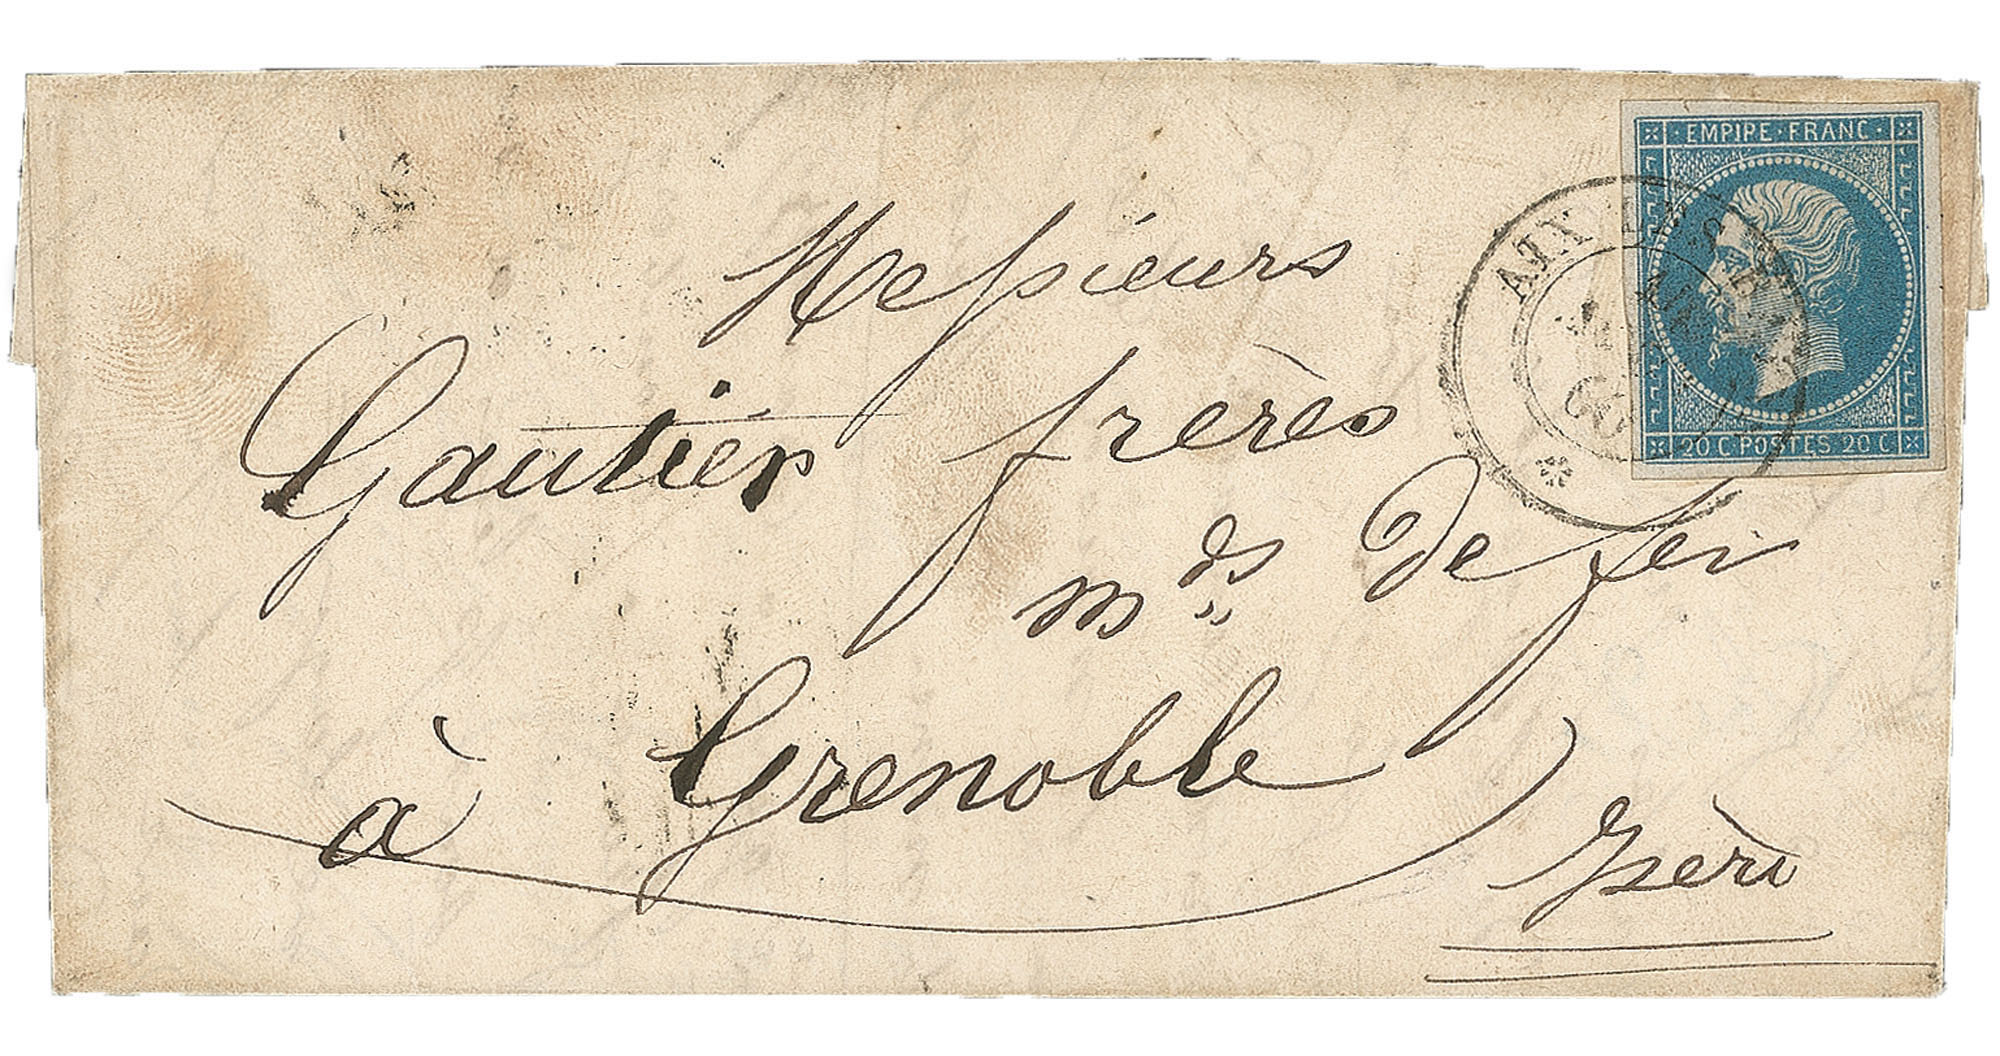 EMPIRE · FRANC ·
20 C POSTES 20 C
AIX
60
Messieurs
Gautier frères
mds de fer
à Grenoble
Isère